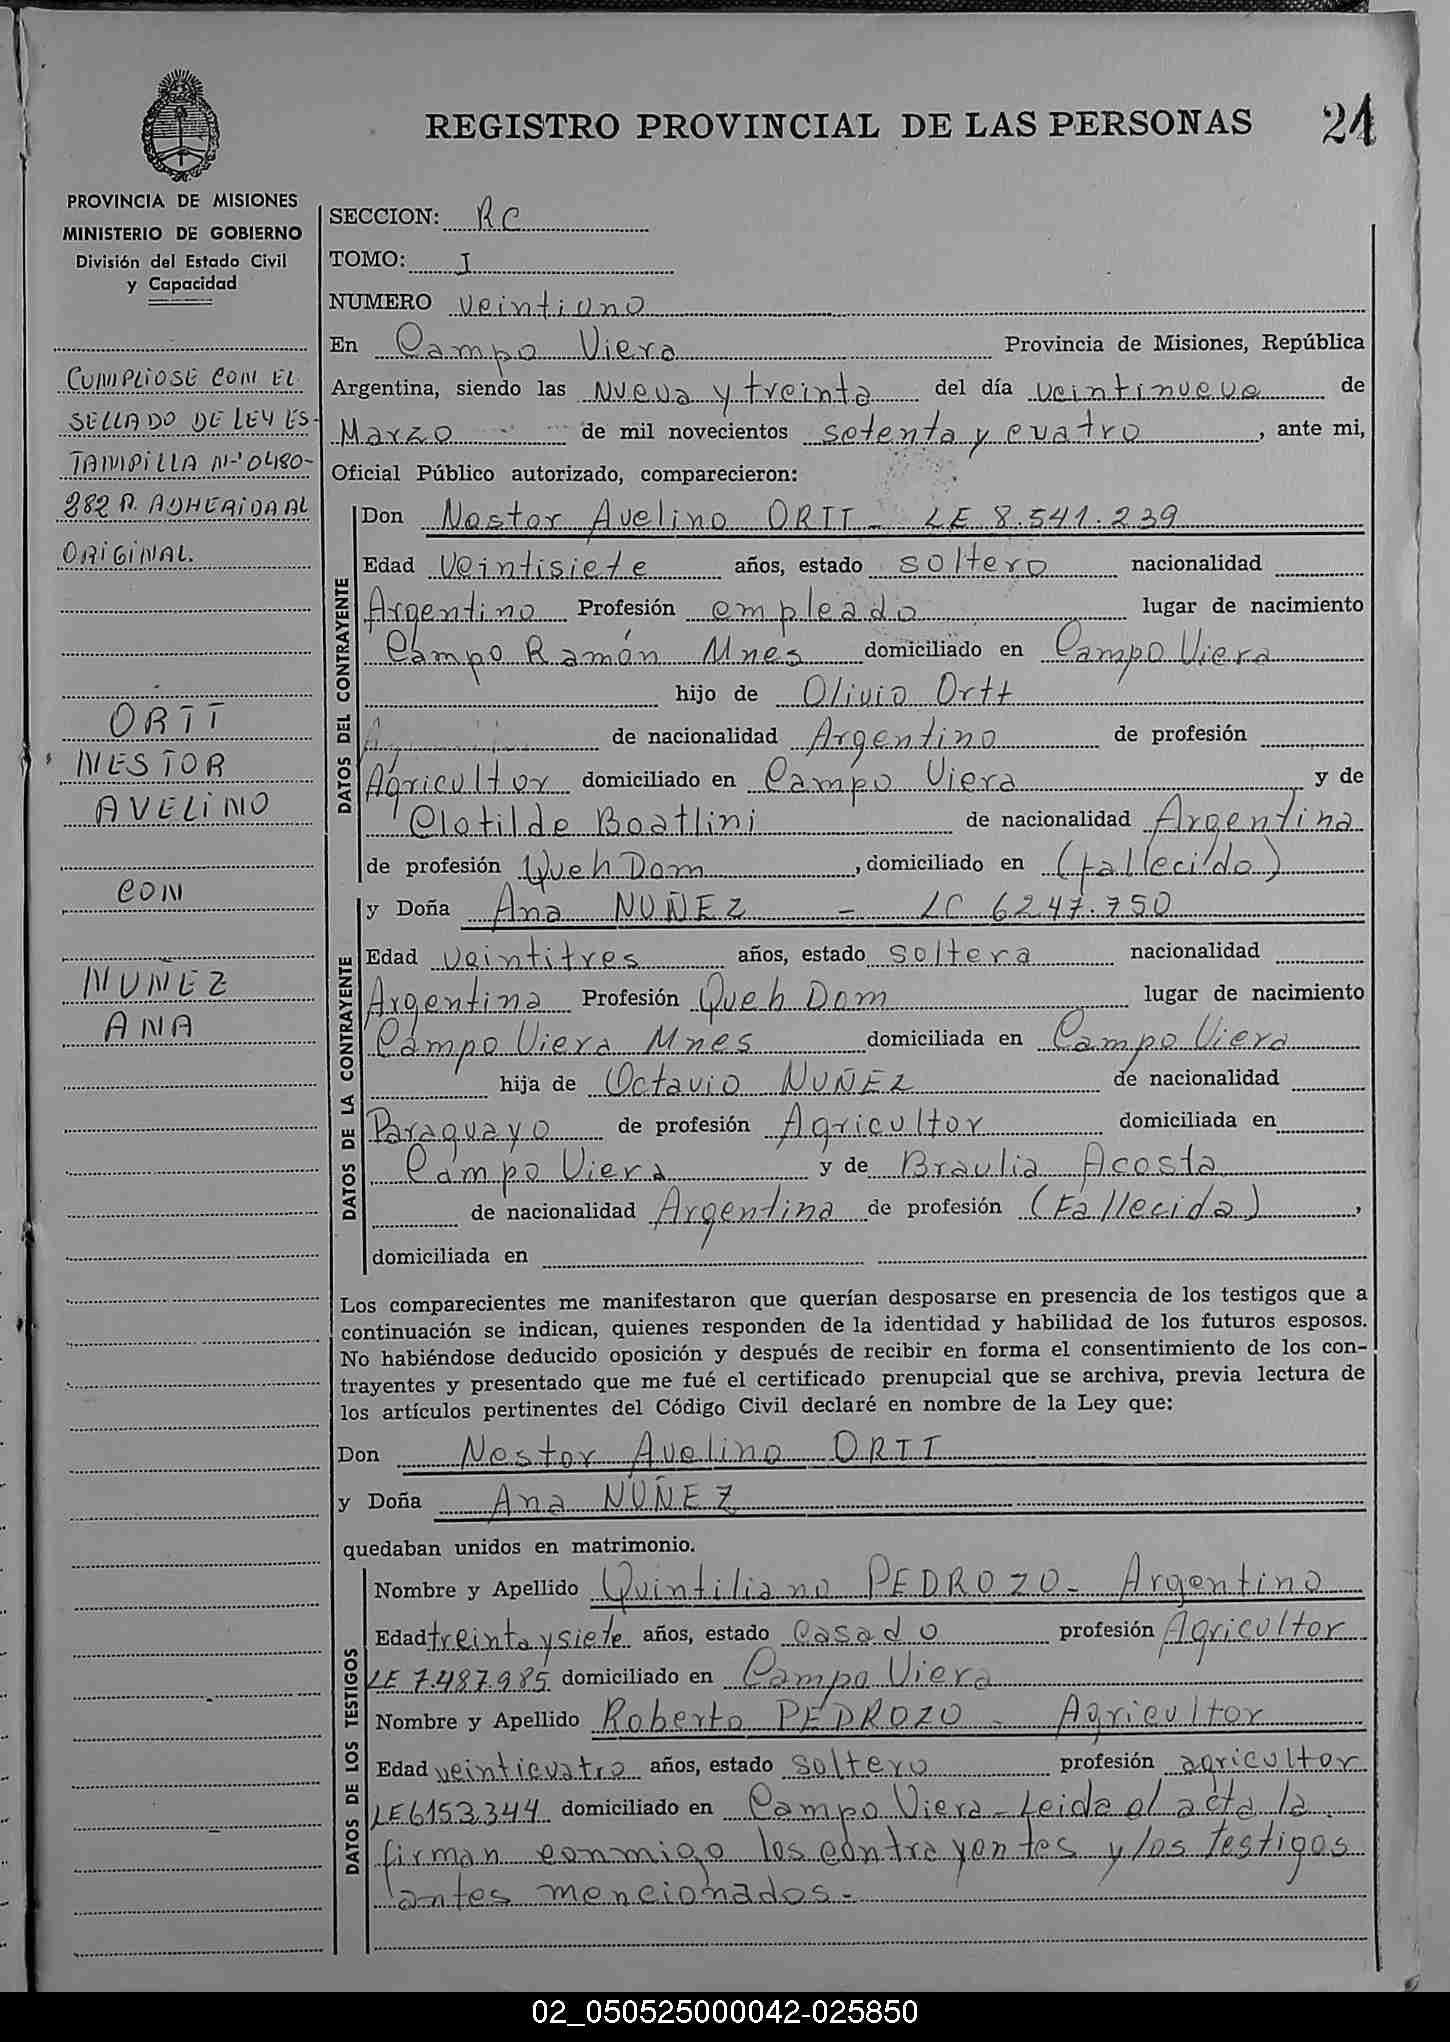 REGISTRO PROVINCIAL DE LAS PERSONAS
21
PROVINCIA DE MISIONES
MINISTERIO DE GOBIERNO
División del Estado Civil
y Capacidad
CUMPLIOSE CON EL
SELLADO DE LEY ES-
TAMPILLA Nº 0480-
282 A. ADHERIDA AL
ORIGINAL.
ORTT
NESTOR
AVELINO
CON
NUÑEZ
ANA
SECCION: RC
TOMO: I
NUMERO veintiuno
En Campo Viera Provincia de Misiones, República
Argentina, siendo las Nueva y treinta del día veintinueve de
Marzo de mil novecientos setenta y cuatro, ante mi,
Oficial Público autorizado, comparecieron:
DATOS DEL CONTRAYENTE
Don Nestor Avelino ORTT - LE 8.541.239
Edad veintisiete años, estado soltero nacionalidad
Argentino Profesión empleado lugar de nacimiento
Campo Ramón Mnes domiciliado en Campo Viera
hijo de Olivio Ortt
de nacionalidad Argentino de profesión
Agricultor domiciliado en Campo Viera y de
Clotilde Boatlini de nacionalidad Argentina
de profesión Queh Dom, domiciliado en (fallecido)
DATOS DE LA CONTRAYENTE
y Doña Ana NUÑEZ - LC 6247.750
Edad veintitres años, estado soltera nacionalidad
Argentina Profesión Queh Dom lugar de nacimiento
Campo Viera Mnes domiciliada en Campo Viera
hija de Octavio NUÑEZ de nacionalidad
Paraguayo de profesión Agricultor domiciliada en
Campo Viera y de Braulia Acosta
de nacionalidad Argentina de profesión (Fallecida),
domiciliada en
Los comparecientes me manifestaron que querían desposarse en presencia de los testigos que a
continuación se indican, quienes responden de la identidad y habilidad de los futuros esposos.
No habiéndose deducido oposición y después de recibir en forma el consentimiento de los con-
trayentes y presentado que me fué el certificado prenupcial que se archiva, previa lectura de
los artículos pertinentes del Código Civil declaré en nombre de la Ley que:
Don Nestor Avelino ORTT
y Doña Ana NUÑEZ
quedaban unidos en matrimonio.
DATOS DE LOS TESTIGOS
Nombre y Apellido Quintiliano PEDROZO - Argentino
Edad treinta y siete años, estado casado profesión Agricultor
LE 7.487.985 domiciliado en Campo Viera
Nombre y Apellido Roberto PEDROZO - Agricultor
Edad veinticuatro años, estado soltero profesión agricultor
LE 6153.344 domiciliado en Campo Viera - Leida el acta la
firman conmigo los contrayentes y los testigos
antes mencionados -
02_050525000042-025850